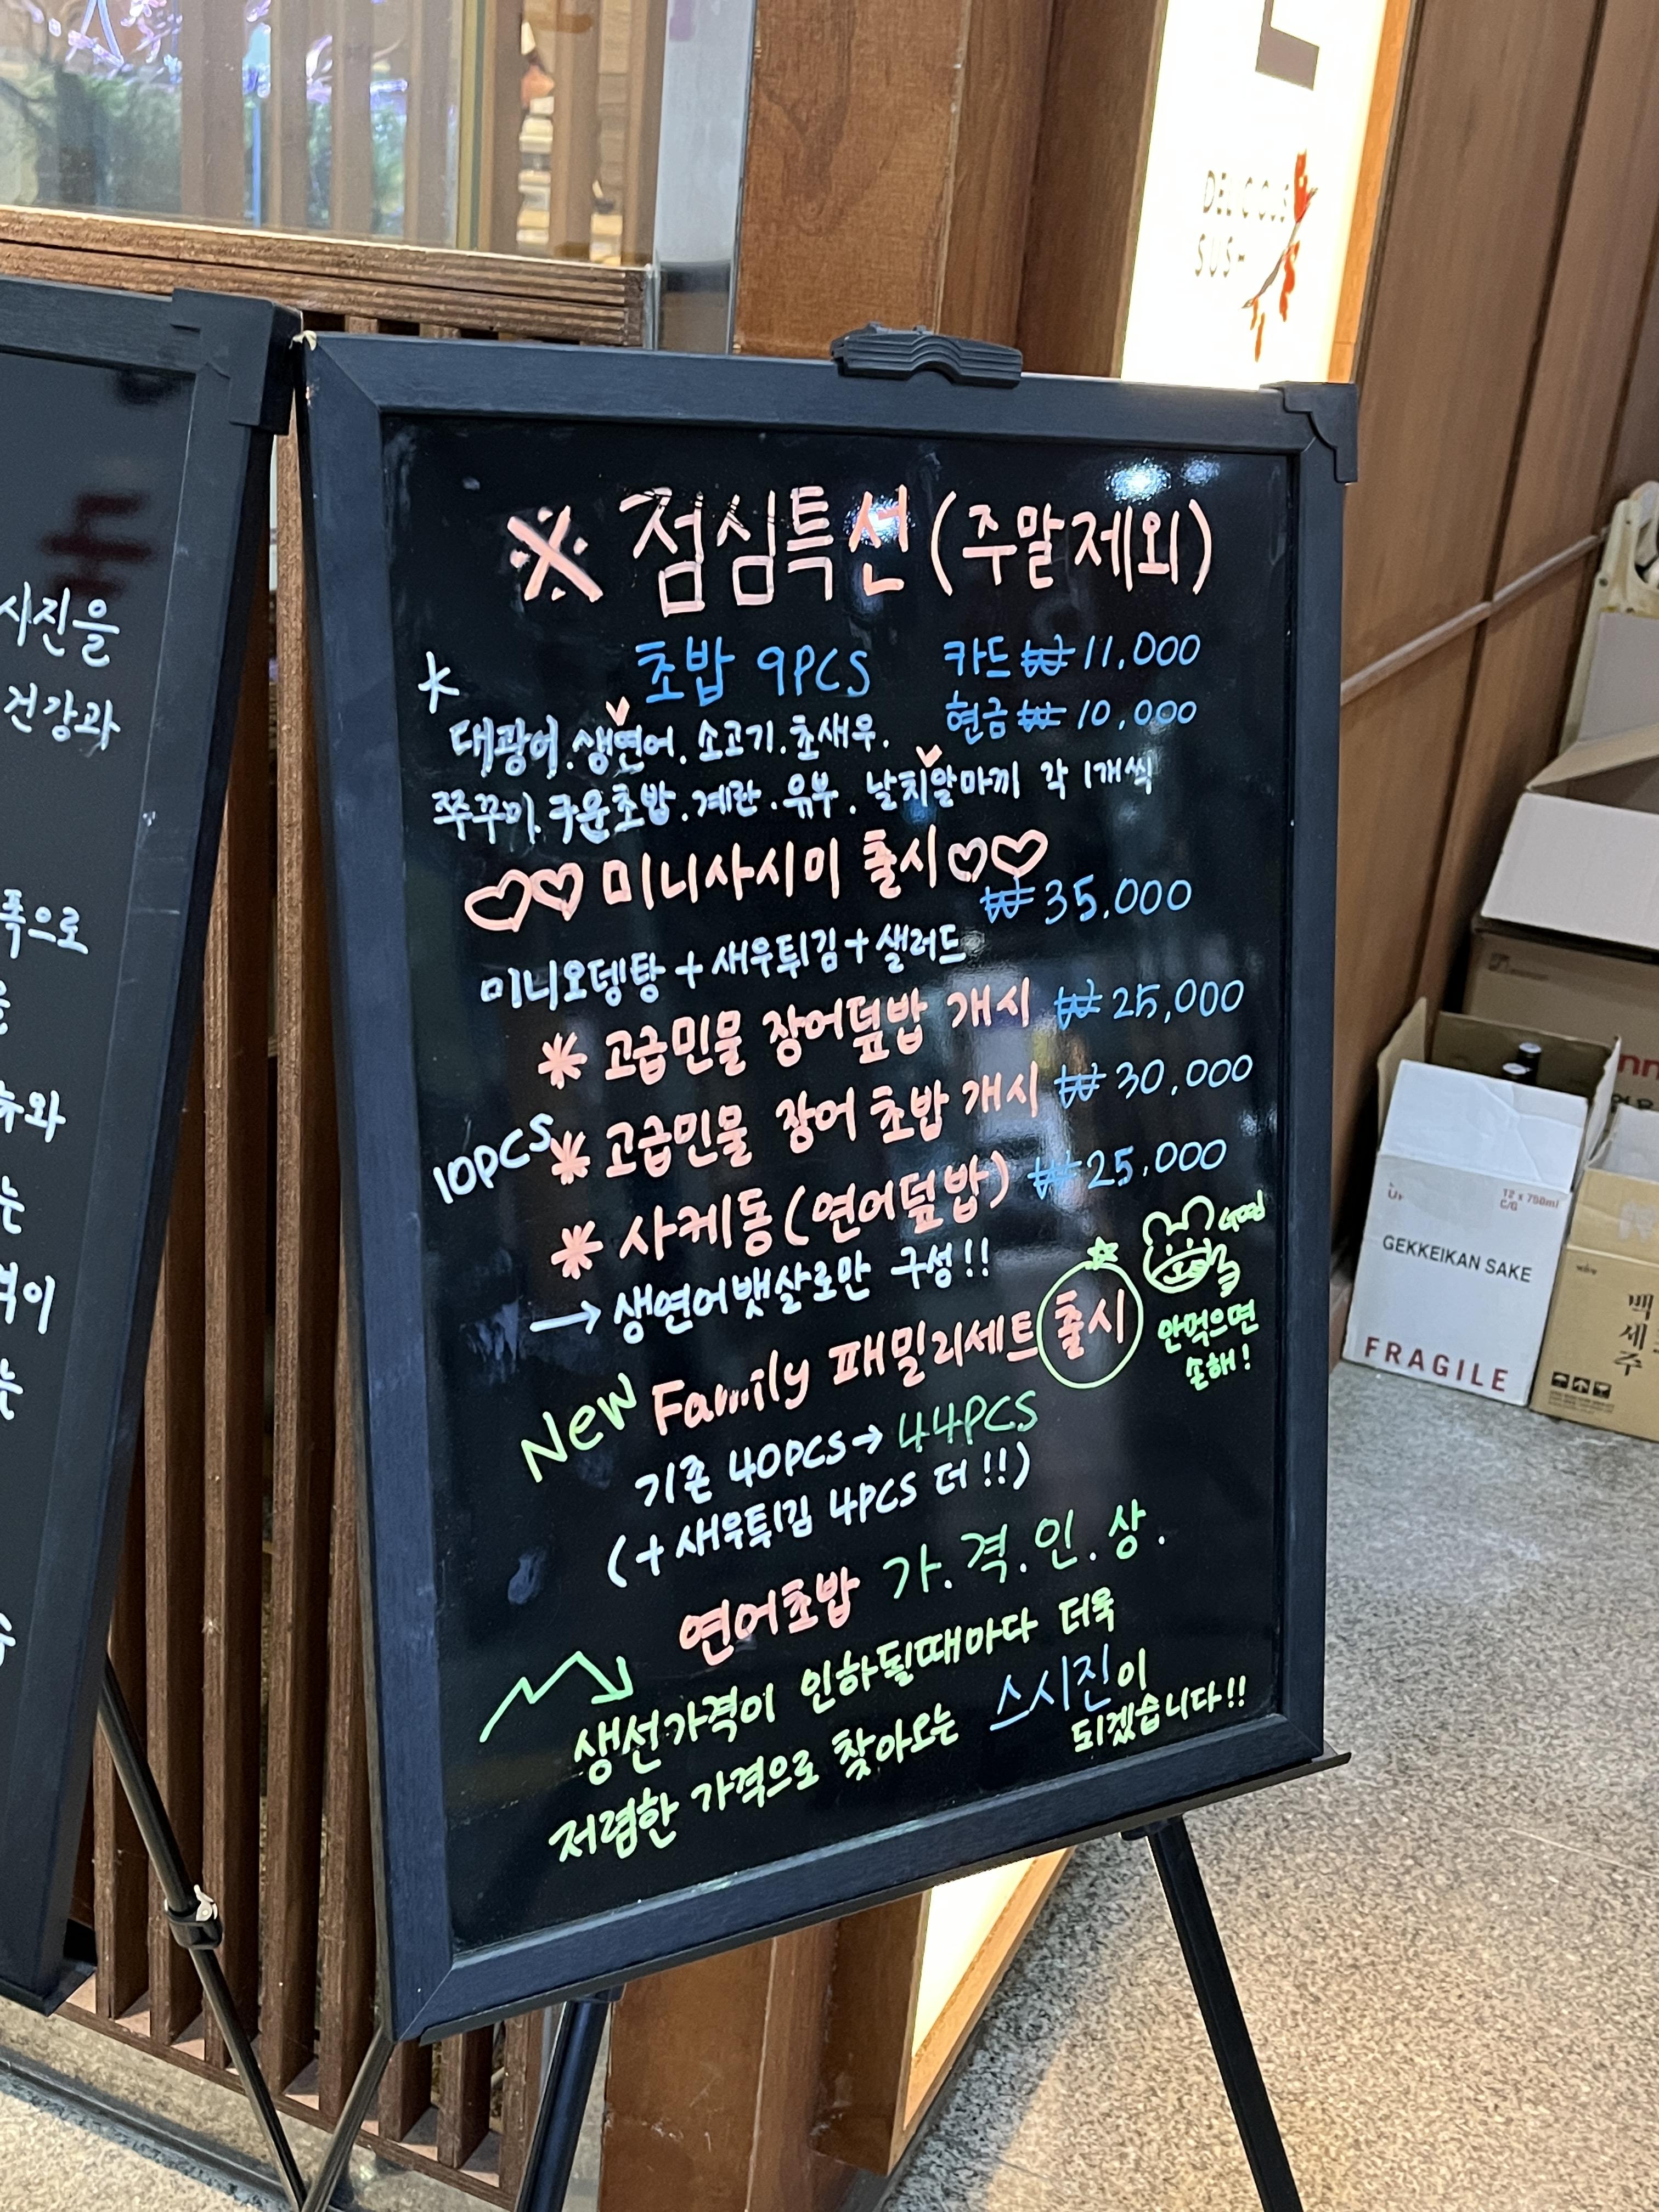 DELICIOUS
SUSHI
※ 점심특선(주말제외)
* 초밥 9PCS 카드 ₩11,000
현금 ₩10,000
대광어.생연어.소고기.초새우.
쭈꾸미.구운초밥.계란.유부.날치알마끼 각 1개씩
♡♡미니사시미 출시♡♡
₩35,000
미니오뎅탕+새우튀김+샐러드
* 고급민물 장어덮밥 개시 ₩25,000
10PCS * 고급민물 장어 초밥 개시 ₩30,000
* 사케동(연어덮밥) ₩25,000
→ 생연어뱃살로만 구성!!
New Family 패밀리세트 출시
안먹으면
손해!
기존 40PCS→44PCS
(+새우튀김 4PCS 더!!)
연어초밥 가.격.인.상.
생선가격이 인하될때마다 더욱
저렴한 가격으로 찾아오는 스시진이
되겠습니다!!
시진을
건강과
폭으로
와
는
격이
는
12 x 750ml
C/G
GEKKEIKAN SAKE
FRAGILE
백세주